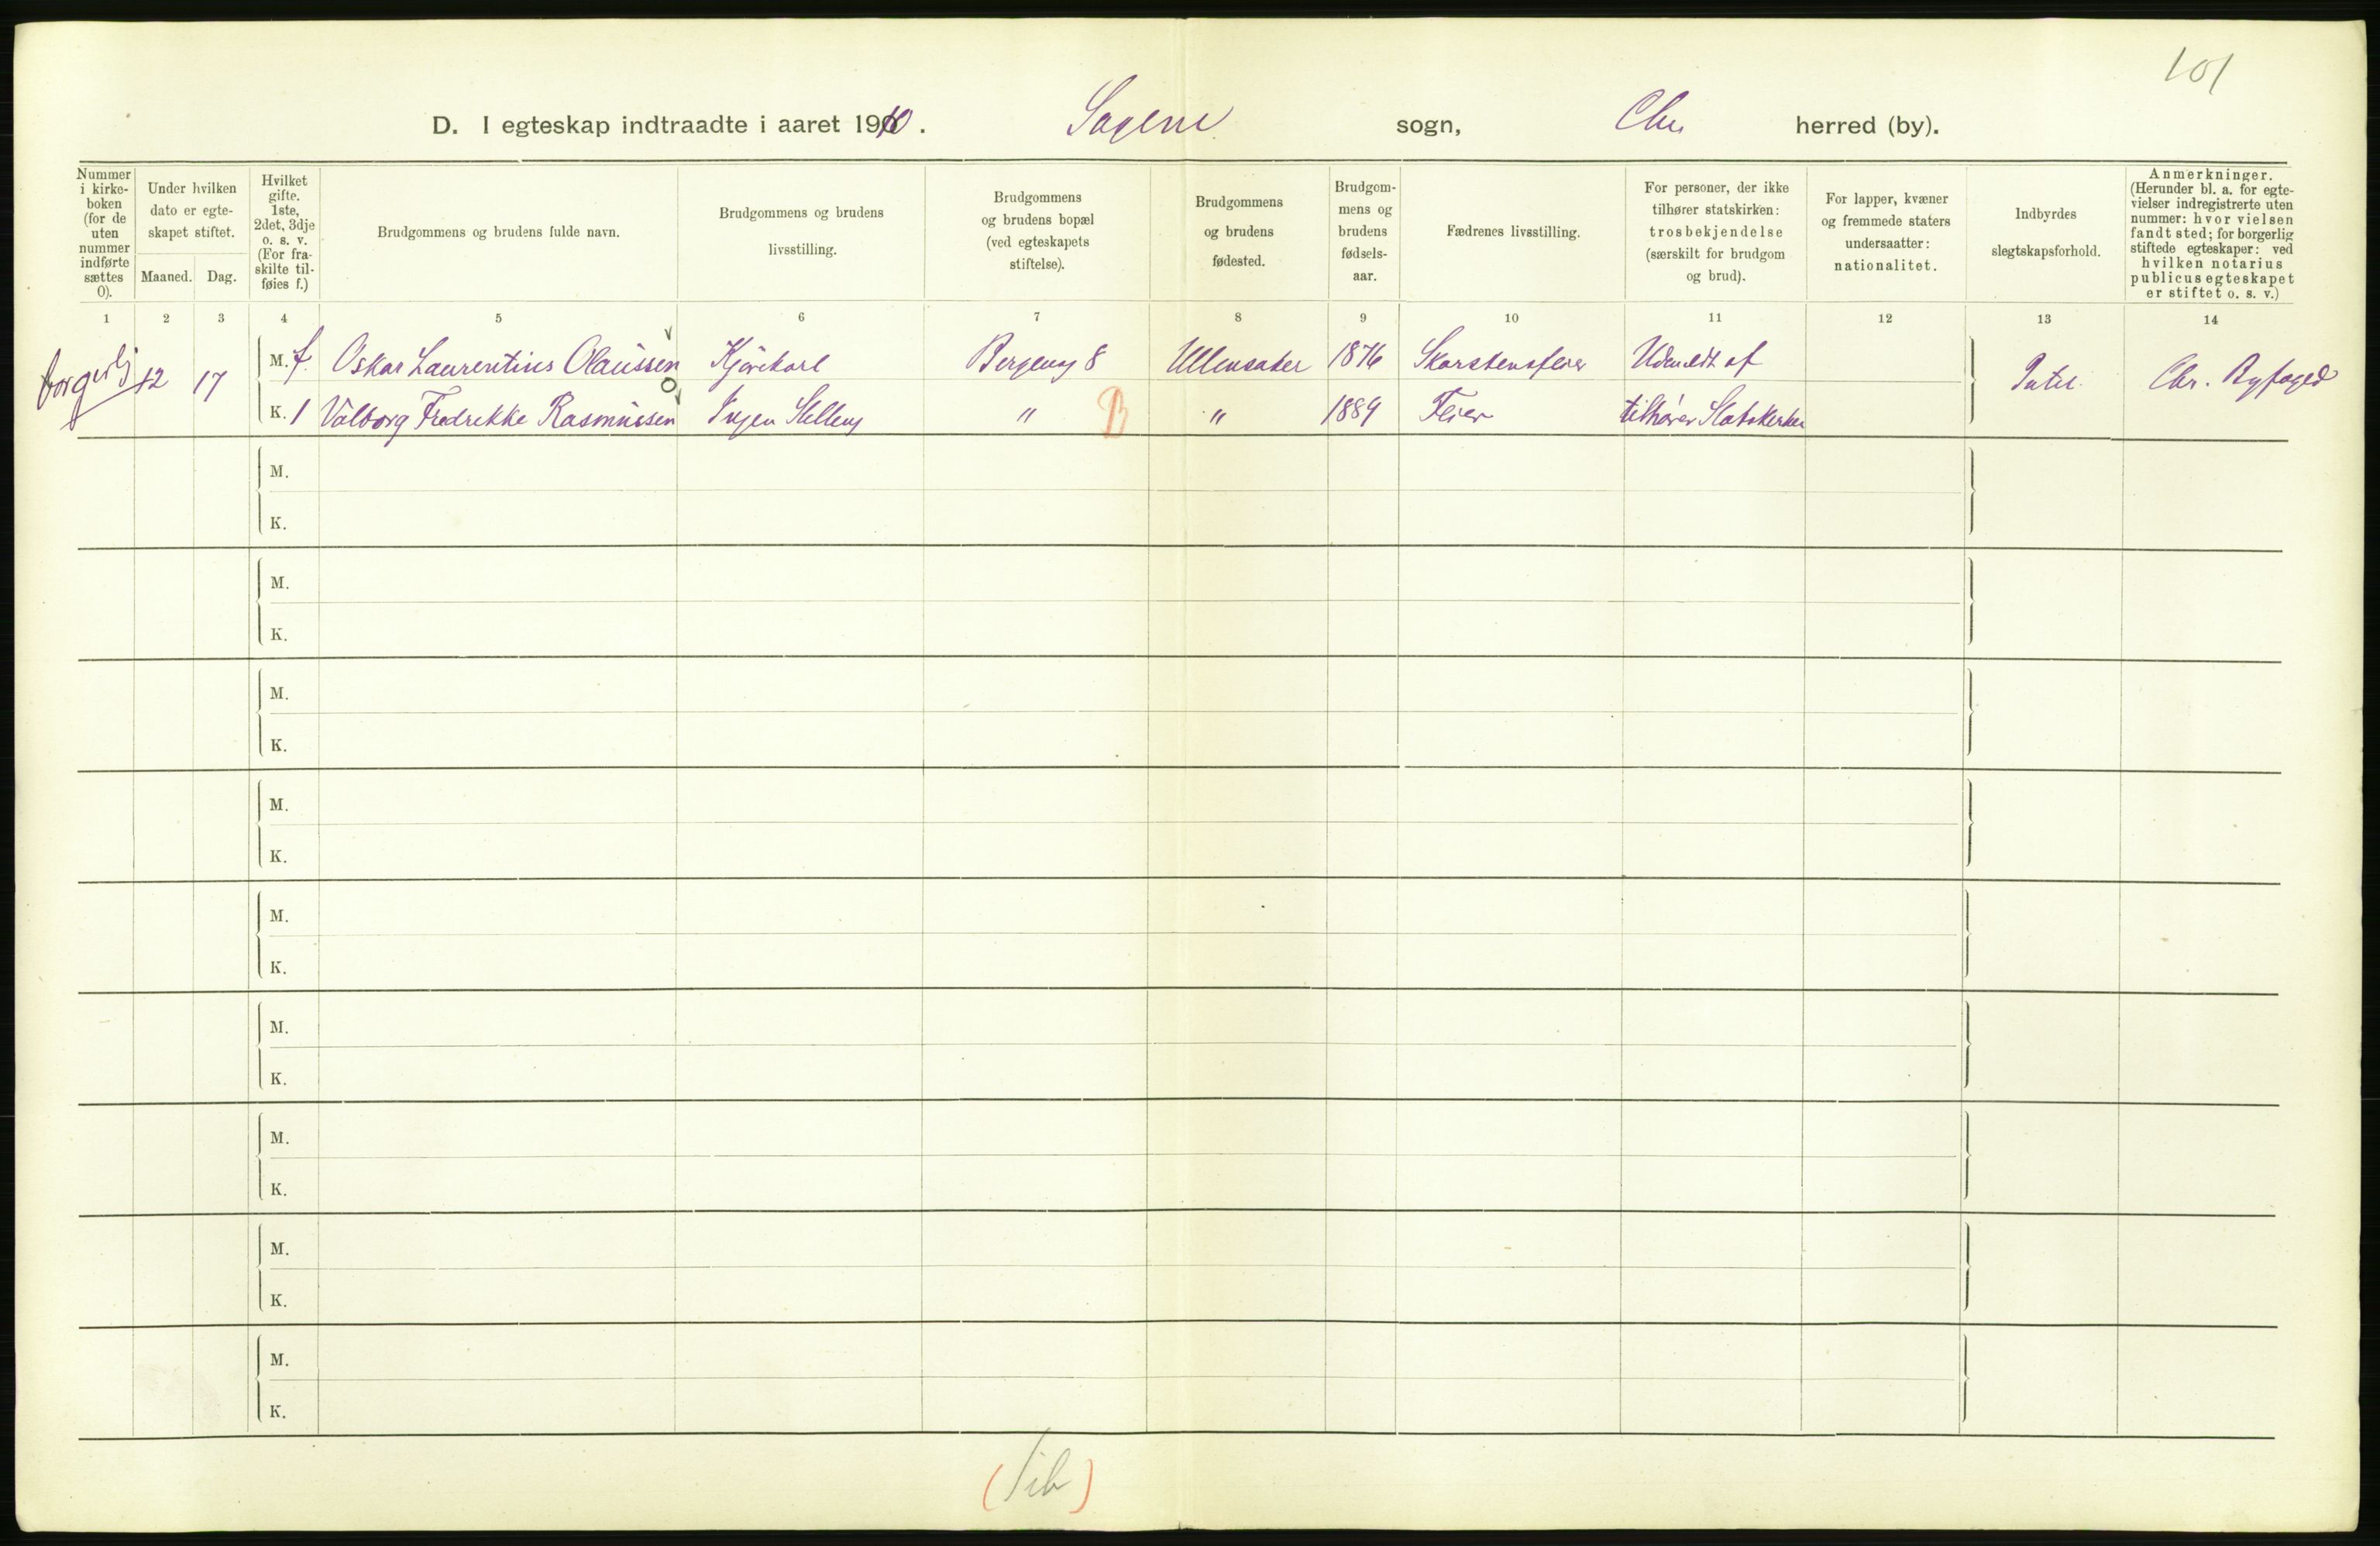 101
D. I egteskap indtraadte i aaret 1910. Sagene sogn, Chra herred (by).
Nummer i kirkeboken (for de uten nummer indførte sættes 0).
Under hvilken dato er egteskapet stiftet.
Maaned. Dag.
Hvilket gifte. 1ste, 2det, 3dje o. s. v. (For fraskilte tilføies f.)
Brudgommens og brudens fulde navn.
Brudgommens og brudens livsstilling.
Brudgommens og brudens bopæl (ved egteskapets stiftelse).
Brudgommens og brudens fødested.
Brudgommens og brudens fødselsaar.
Fædrenes livsstilling.
For personer, der ikke tilhører statskirken: trosbekjendelse (særskilt for brudgom og brud).
For lapper, kvæner og fremmede staters undersaatter: nationalitet.
Indbyrdes slegtskapsforhold.
Anmerkninger. (Herunder bl. a. for egtevielser indregistrerte uten nummer: hvor vielsen fandt sted; for borgerlig stiftede egteskaper: ved hvilken notarius publicus egteskapet er stiftet o. s. v.)
1 2 3 4 5 6 7 8 9 10 11 12 13 14
borgerlig 12 17
M. f. Oskar Laurentius Olaussen Kjørekarl Bergeng 8 Ullensaker 1876 Skorstensfeier Udmeldt af
Intet Chr. Byfoged
K. 1 Valborg Fredrikke Rasmussen Ingen Stilling " B " 1889 Feier tilhører Statskirken
M.
K.
M.
K.
M.
K.
M.
K.
M.
K.
M.
K.
M.
K.
M.
K.
M.
K.